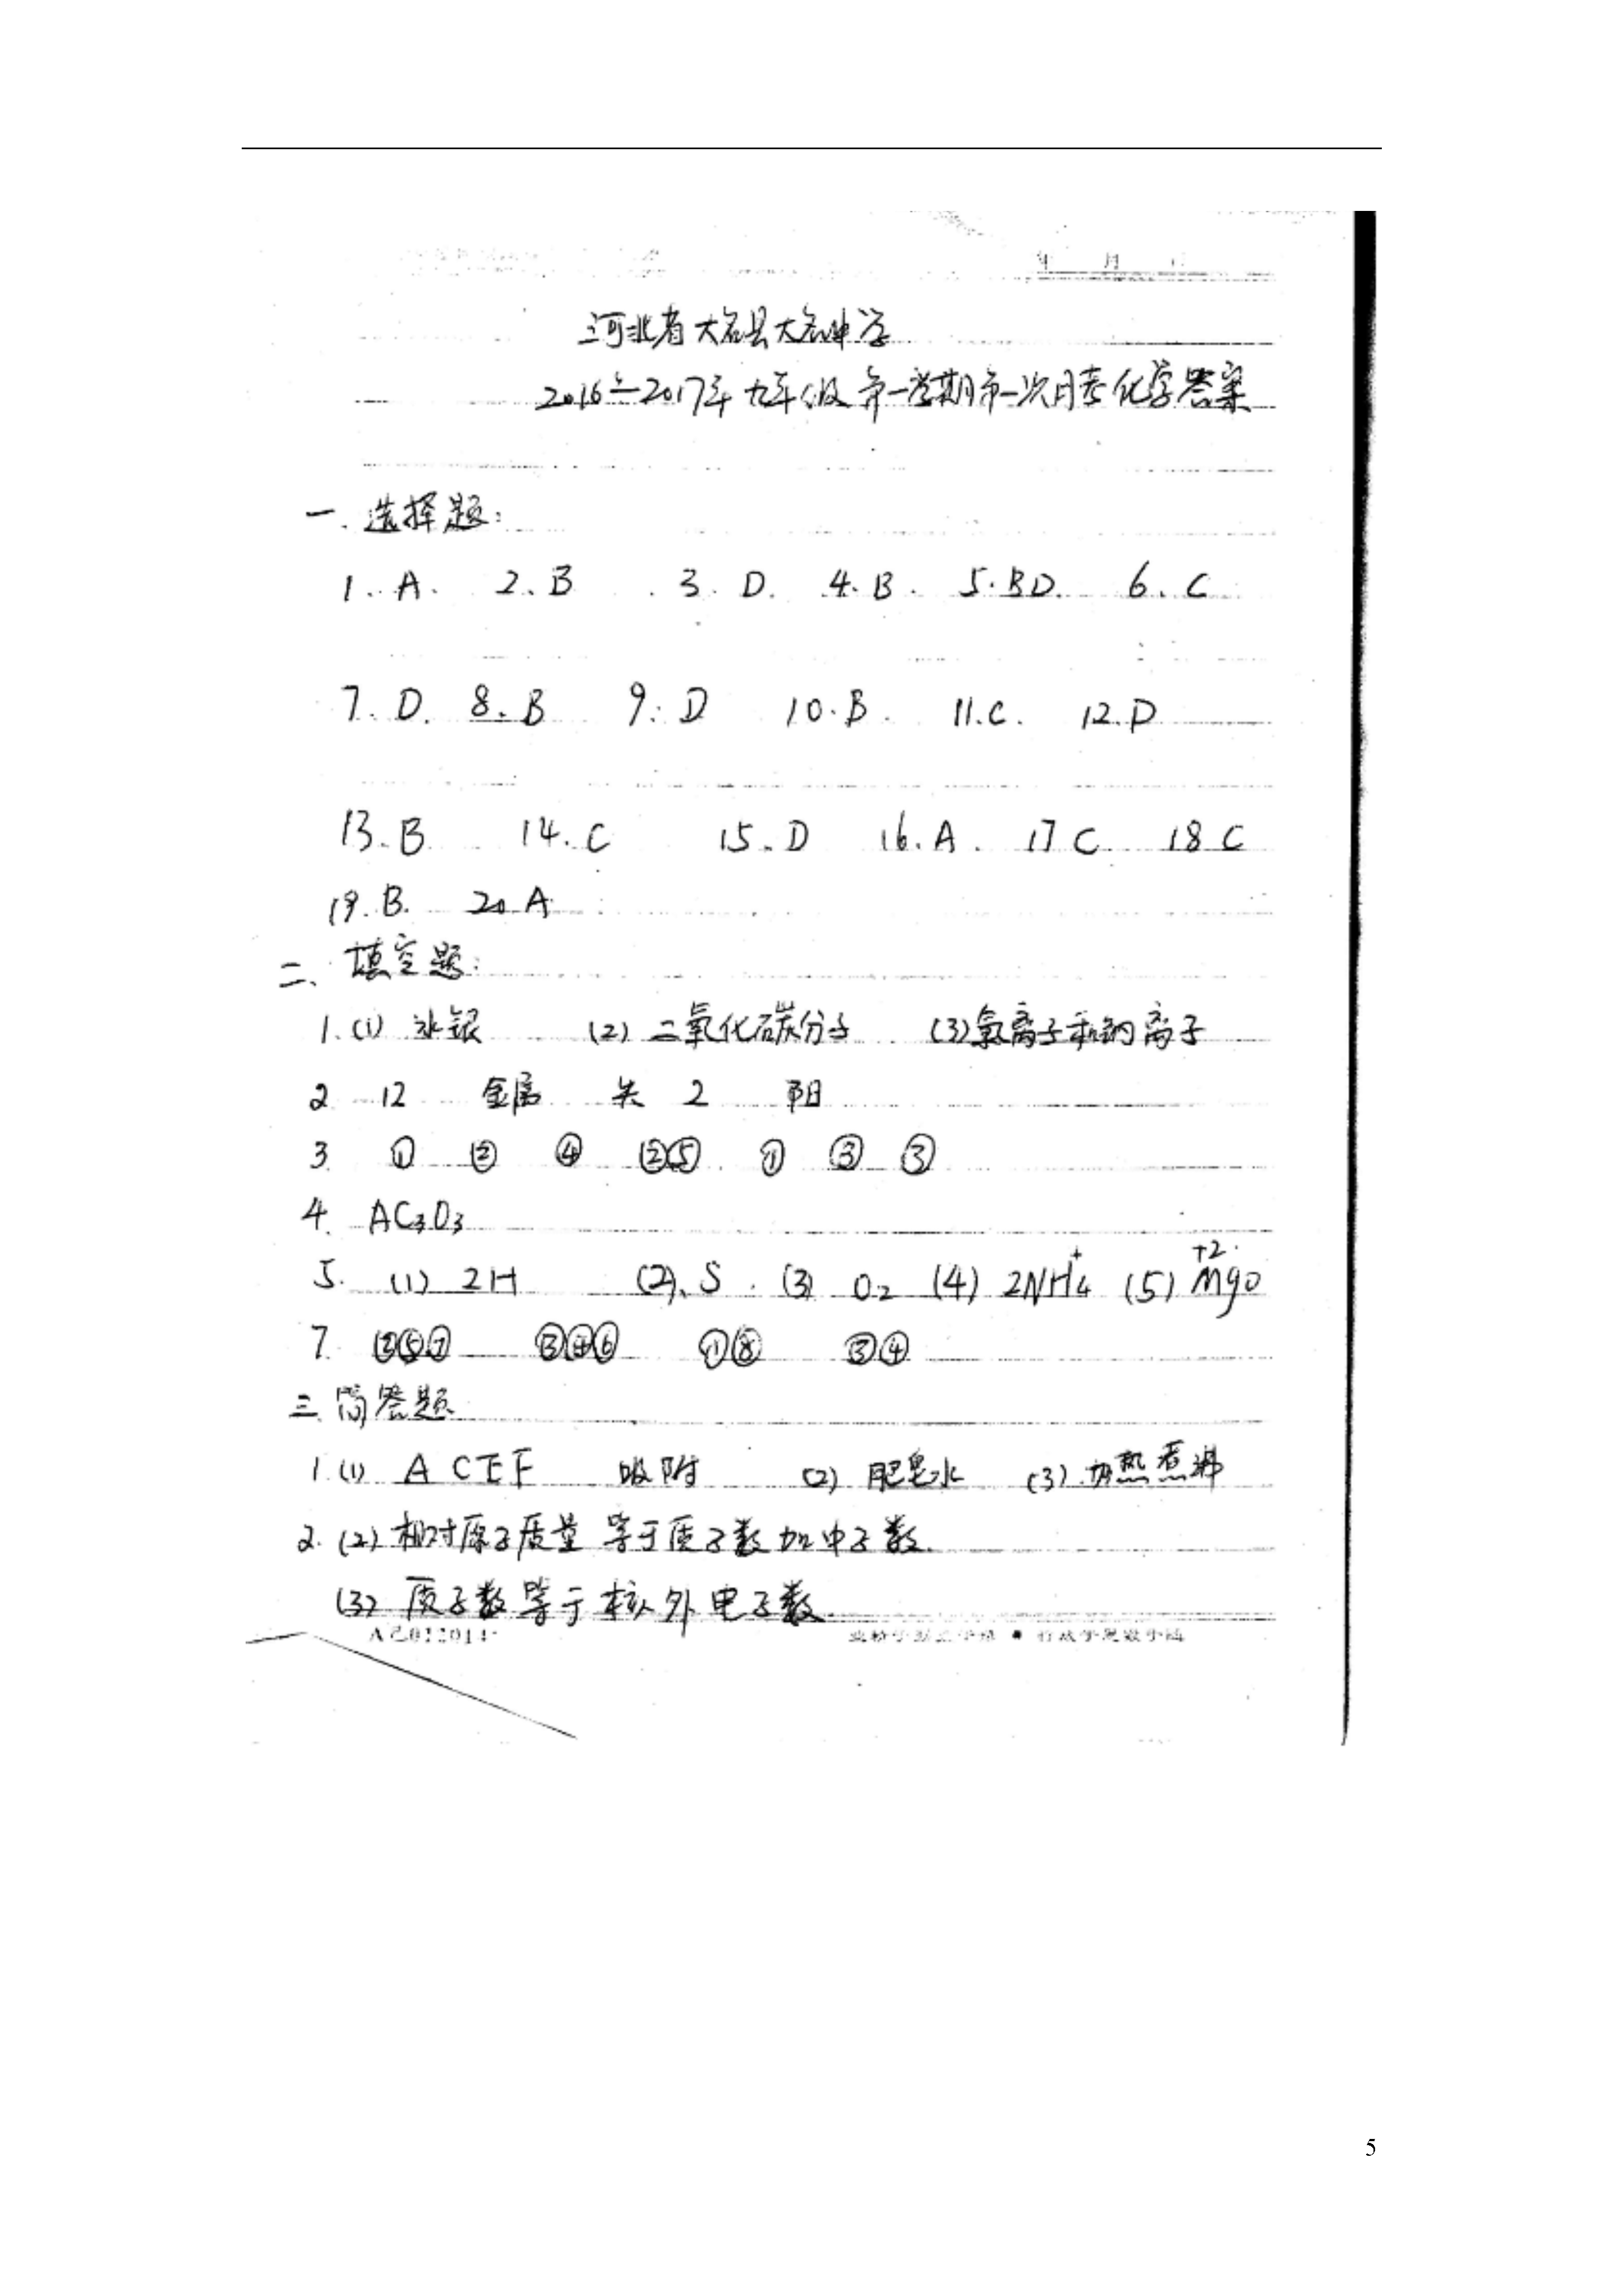 年 月
河北省大名县大名中学
2016—2017年九年级第一学期第一次月考化学答案
一.选择题:
1. A. 2. B 3. D. 4. B. 5. BD. 6. C
7. D. 8. B 9. D 10. B. 11. C. 12. D
13. B 14. C 15. D 16. A. 17 C. 18 C
19. B. 20 A
二、填空题:
1. (1) 水银 (2) 二氧化碳分子 (3) 氯离子和钠离子
2 12 金属 失 2 阳
3. ① ② ④ ②⑤ ① ③ ③
4. AC₃D₃
5. (1) 2H (2) S (3) O₂ (4) 2NH₄⁺ (5) +2 MgO
7. ②⑤⑦ ③④⑥ ①⑧ ③④
三.简答题
1. (1) A C E F 吸附 (2) 肥皂水 (3) 加热煮沸
2. (2) 相对原子质量等于质子数加中子数.
(3) 质子数等于核外电子数.
5